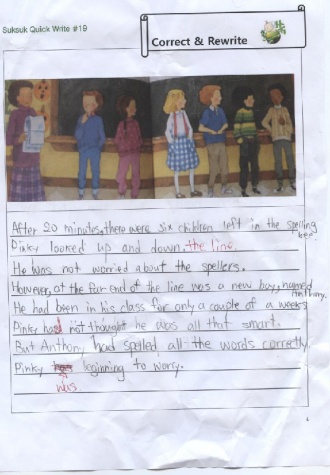 Suksuk Quick Write #19
Correct & Rewrite
After 20 minutes, there were six children left in the spelling bee.
Pinky looked up and down the line.
He was not worried about the spellers.
However, at the far end of the line was a new boy, named Anthony.
He had been in his class for only a couple of a weeks
Pinky had not thought he was all that smart.
But Anthony had spelled all the words correctly
Pinky was beginning to worry.